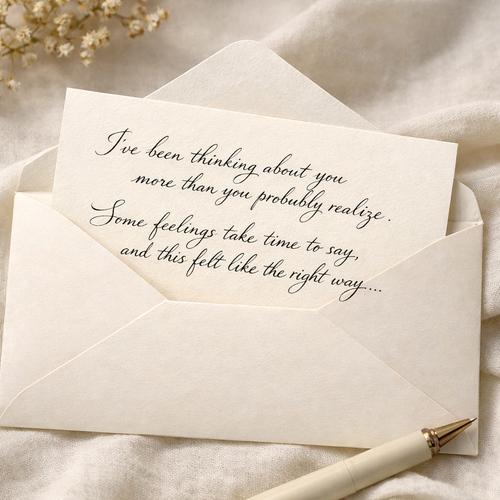 I've been thinking about you
more than you probably realize.
Some feelings take time to say,
and this felt like the right way....